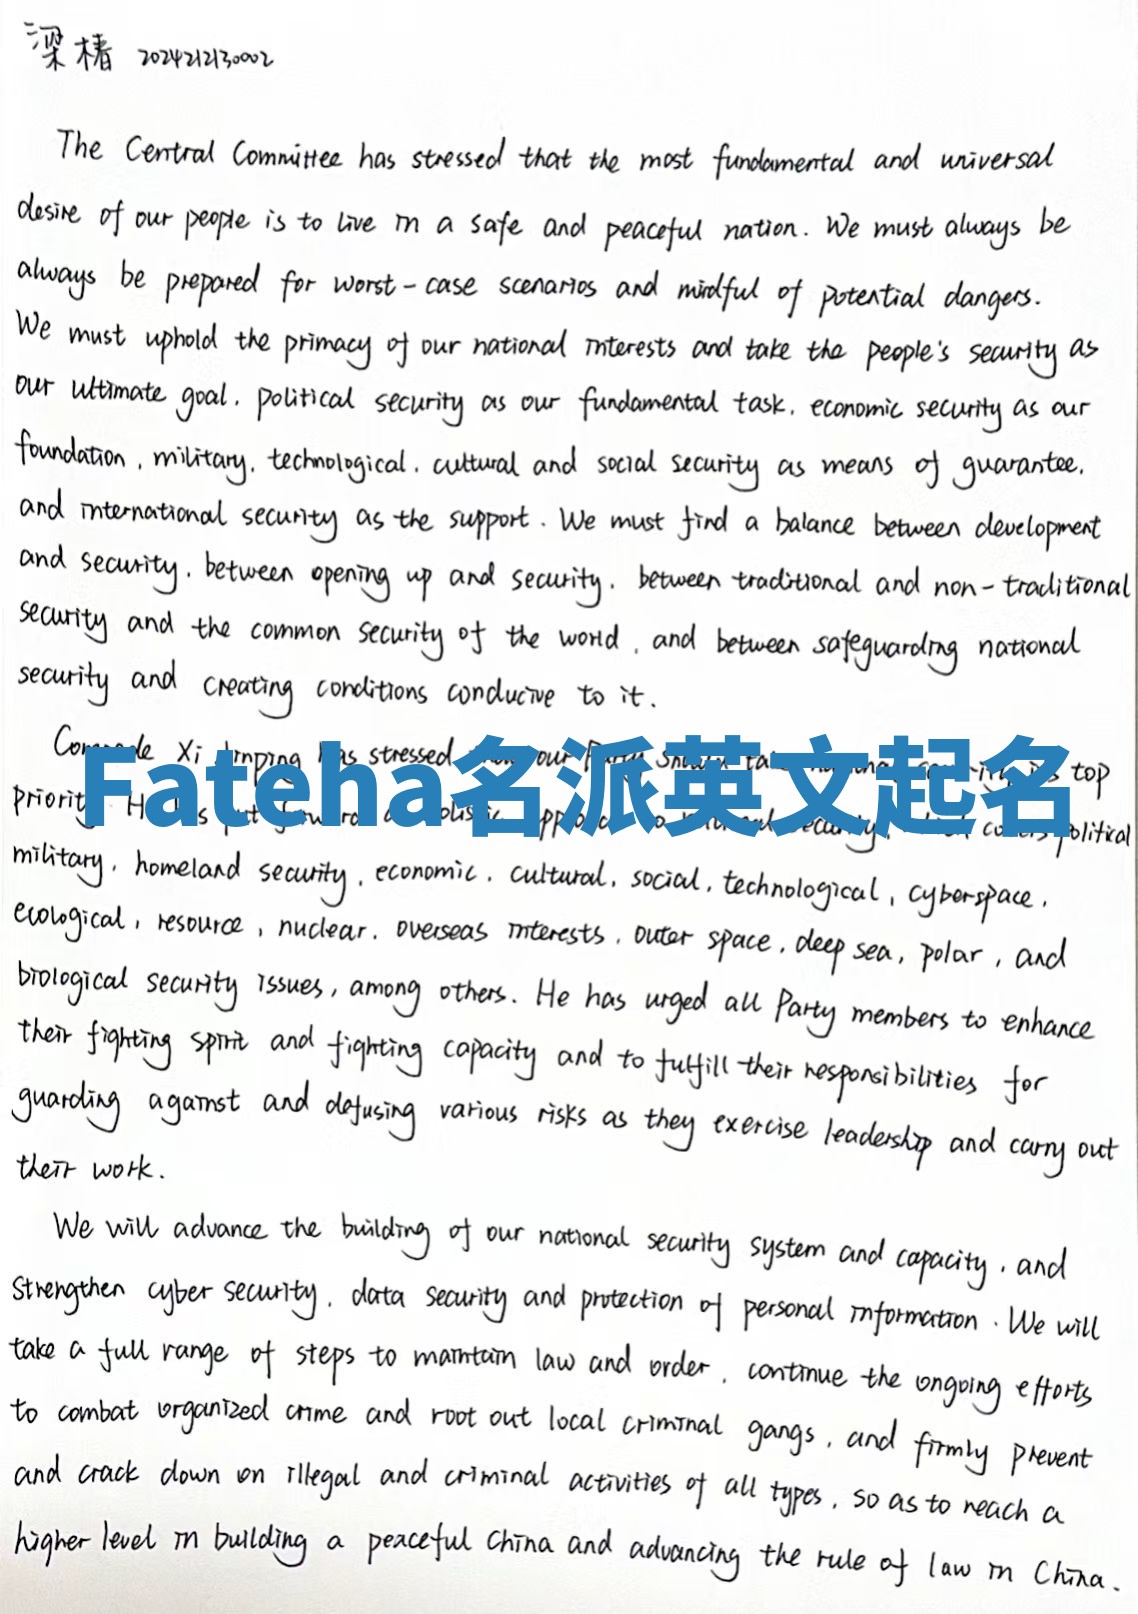 梁椿 2024212130002
The Central Committee has stressed that the most fundamental and universal
desire of our people is to live in a safe and peaceful nation. We must always be
always be prepared for worst-case scenarios and mindful of potential dangers.
We must uphold the primacy of our national interests and take the people's security as
our ultimate goal, political security as our fundamental task, economic security as our
foundation, military, technological, cultural and social security as means of guarantee,
and international security as the support. We must find a balance between development
and security, between opening up and security, between traditional and non-traditional
security and the common security of the world, and between safeguarding national
security and creating conditions conducive to it.
Xi Jinping has stressed our top
Fateha名派英文起名
priority political
military, homeland security, economic, cultural, social, technological, cyberspace,
ecological, resource, nuclear, overseas interests, outer space, deep sea, polar, and
biological security issues, among others. He has urged all Party members to enhance
their fighting spirit and fighting capacity and to fulfill their responsibilities for
guarding against and defusing various risks as they exercise leadership and carry out
their work.
We will advance the building of our national security system and capacity, and
strengthen cyber security, data security and protection of personal information. We will
take a full range of steps to maintain law and order, continue the ongoing efforts
to combat organized crime and root out local criminal gangs, and firmly prevent
and crack down on illegal and criminal activities of all types, so as to reach a
higher level in building a peaceful China and advancing the rule of law in China.